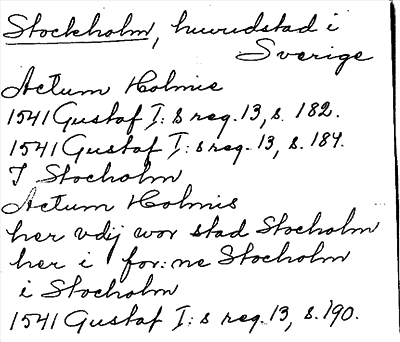 Stockholm, huvudstad i
Sverige
Actum Holmie
1541 Gustaf I: s reg. 13, s. 182.
1541 Gustaf I: s reg. 13, s. 184.
I Stocholm
Actum Holmis
her vdij wor stad Stocholm
her i for: ne Stocholm
i Stocholm
1541 Gustaf I: s reg. 13, s. 190.